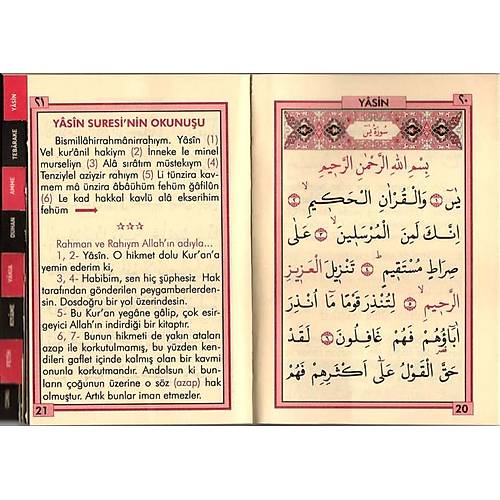 YÂSİN
TEBÂREKE
AMME
DUHAN
VÂKIA
FETİH
٢١
YÂSİN SURESİ'NİN OKUNUŞU
Bismillâhirrahmânirrahıym. Yâsîn (1)
Vel kur'ânil hakiym (2) İnneke le minel
murseliyn (3) Alâ sırâtım müstekıym (4)
Tenziylel azizir rahıym (5) Li tünzira kav-
mem mâ ünzira âbâühüm fehüm ğâfilûn
(6) Le kad hakkal kavlü alâ ekserihim
fehüm
Rahman ve Rahıym Allah'ın adıyla...
1, 2- Yâsîn. O hikmet dolu Kur'an'a
yemin ederim ki,
3, 4- Habibim, sen hiç şüphesiz Hak
tarafından gönderilen peygamberlerden-
sin. Dosdoğru bir yol üzerindesin.
5- Bu Kur'an yegâne gâlip, çok esir-
geyici Allah'ın indirdiği bir kitaptır.
6, 7- Bunun hikmeti de yakın ataları
azap ile korkutulmamış, bu yüzden ken-
dileri gaflet içinde kalmış olan bir kavmi
onunla korkutmandır. Andolsun ki bun-
ların çoğunun üzerine o söz (azap) hak
olmuştur. Artık bunlar iman etmezler.
21
YÂSİN
٢٠
سُورَةُ يٰسٓ
بِسْمِ اللّٰهِ الرَّحْمٰنِ الرَّحِيمِ
يٰسٓ ﴿١﴾ وَالْقُرْاٰنِ الْحَكِيمِ ﴿٢﴾
اِنَّكَ لَمِنَ الْمُرْسَلِينَ ﴿٣﴾ عَلٰى
صِرَاطٍ مُسْتَقِيمٍ ﴿٤﴾ تَنْزِيلَ الْعَزِيزِ
الرَّحِيمِ ﴿٥﴾ لِتُنْذِرَ قَوْمًا مَٓا اُنْذِرَ
اٰبَٓاؤُهُمْ فَهُمْ غَافِلُونَ ﴿٦﴾ لَقَدْ
حَقَّ الْقَوْلُ عَلٰٓى اَكْثَرِهِمْ فَهُمْ
20